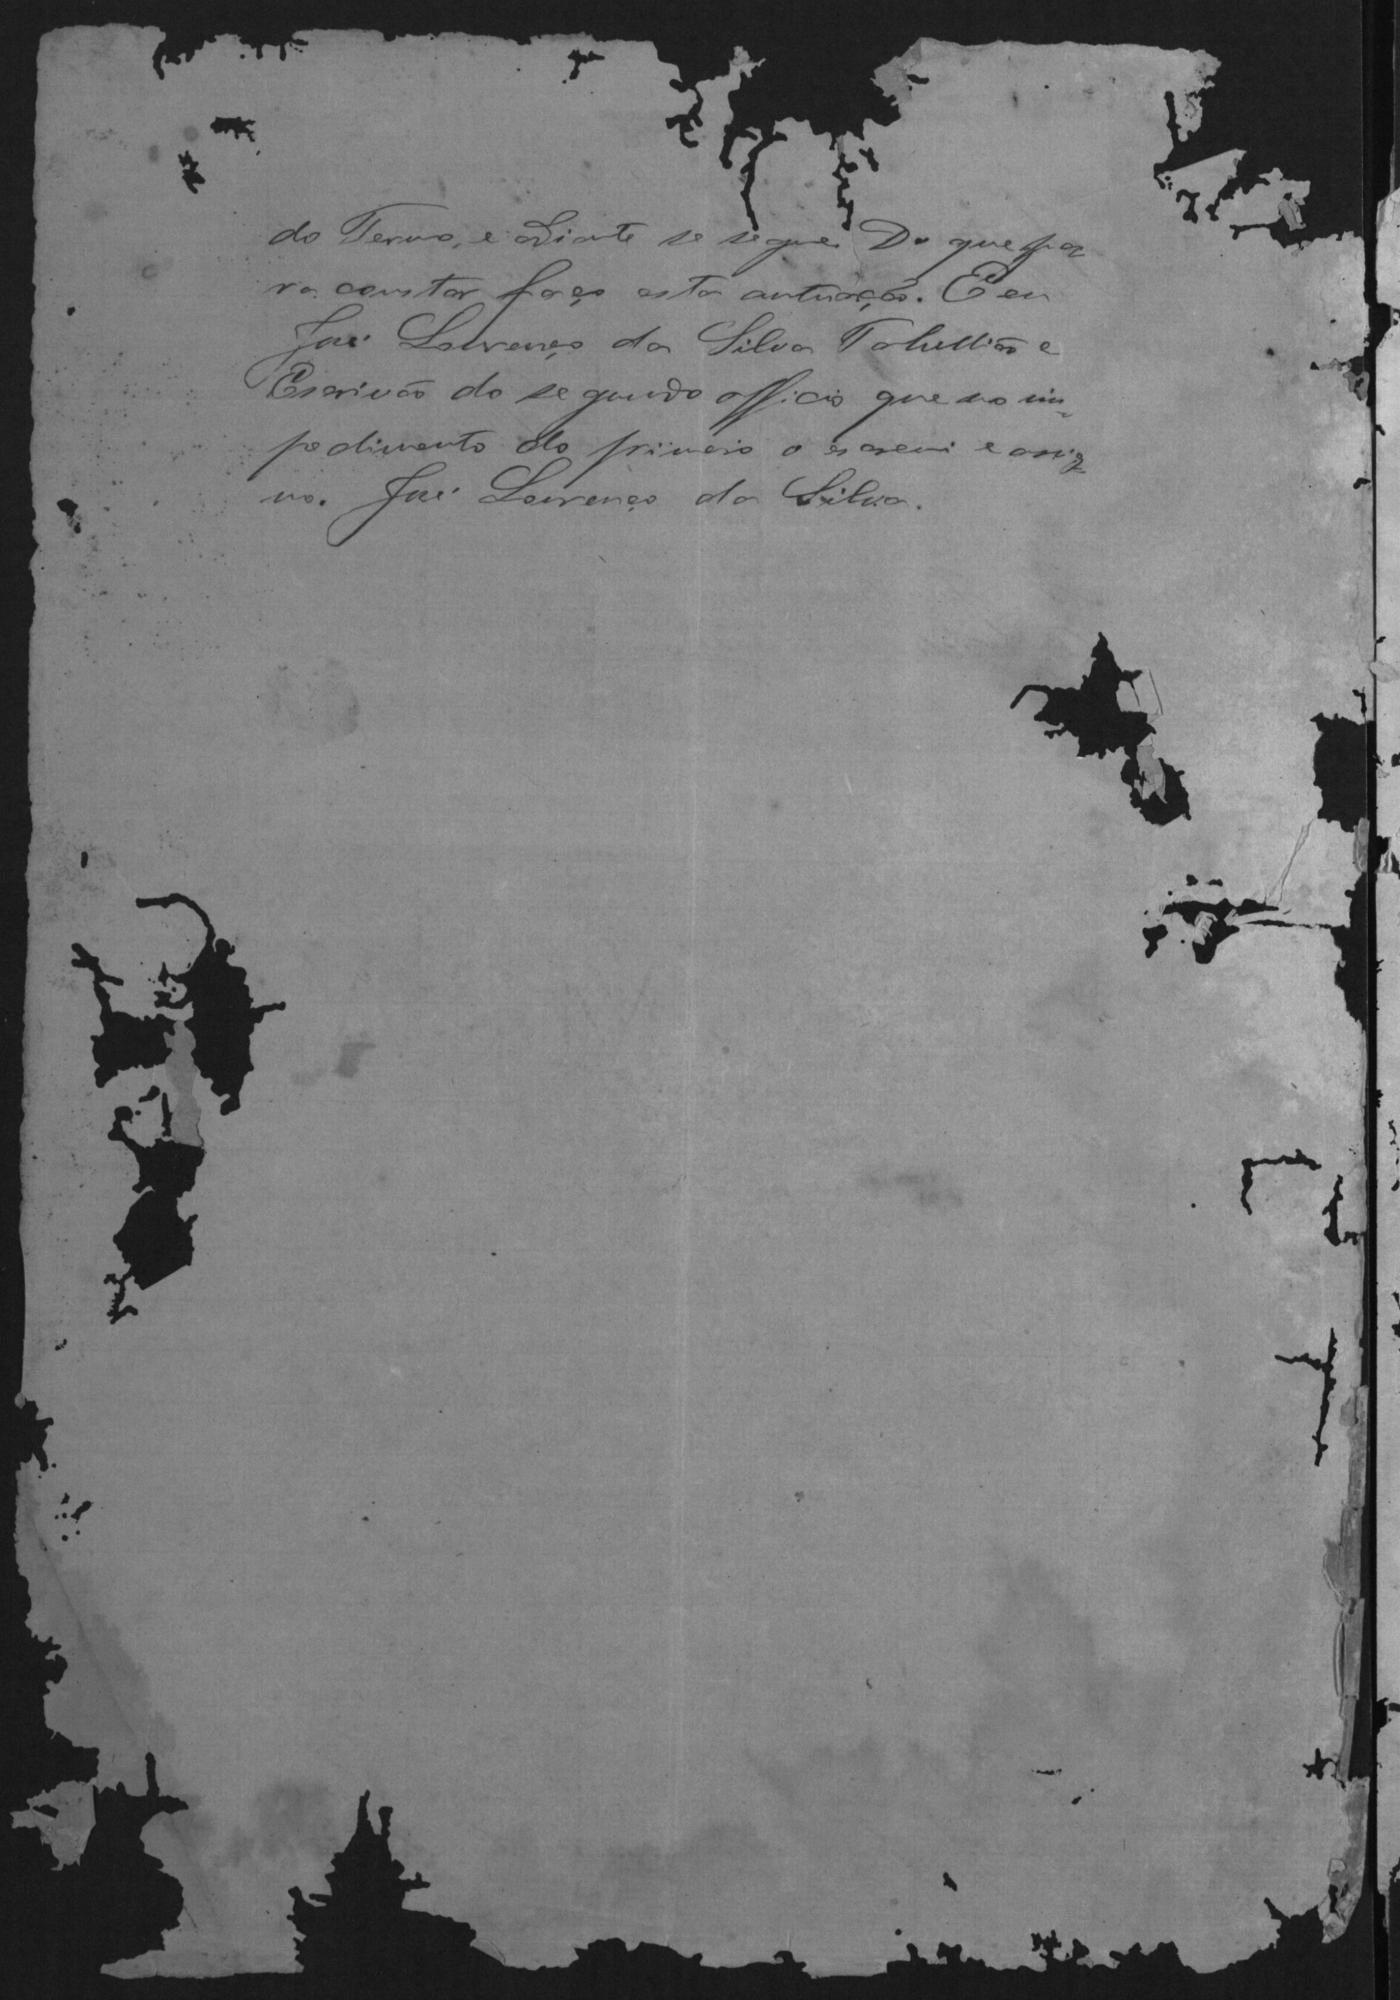 do Termo, e adiante se segue. Do que pa
ra constar faço esta autuação. E eu
José Lourenço da Silva Tabellião e
Escrivão do segundo officio que no im-
pedimento do primeiro o escrevi e assig-
no. José Lourenço da Silva.